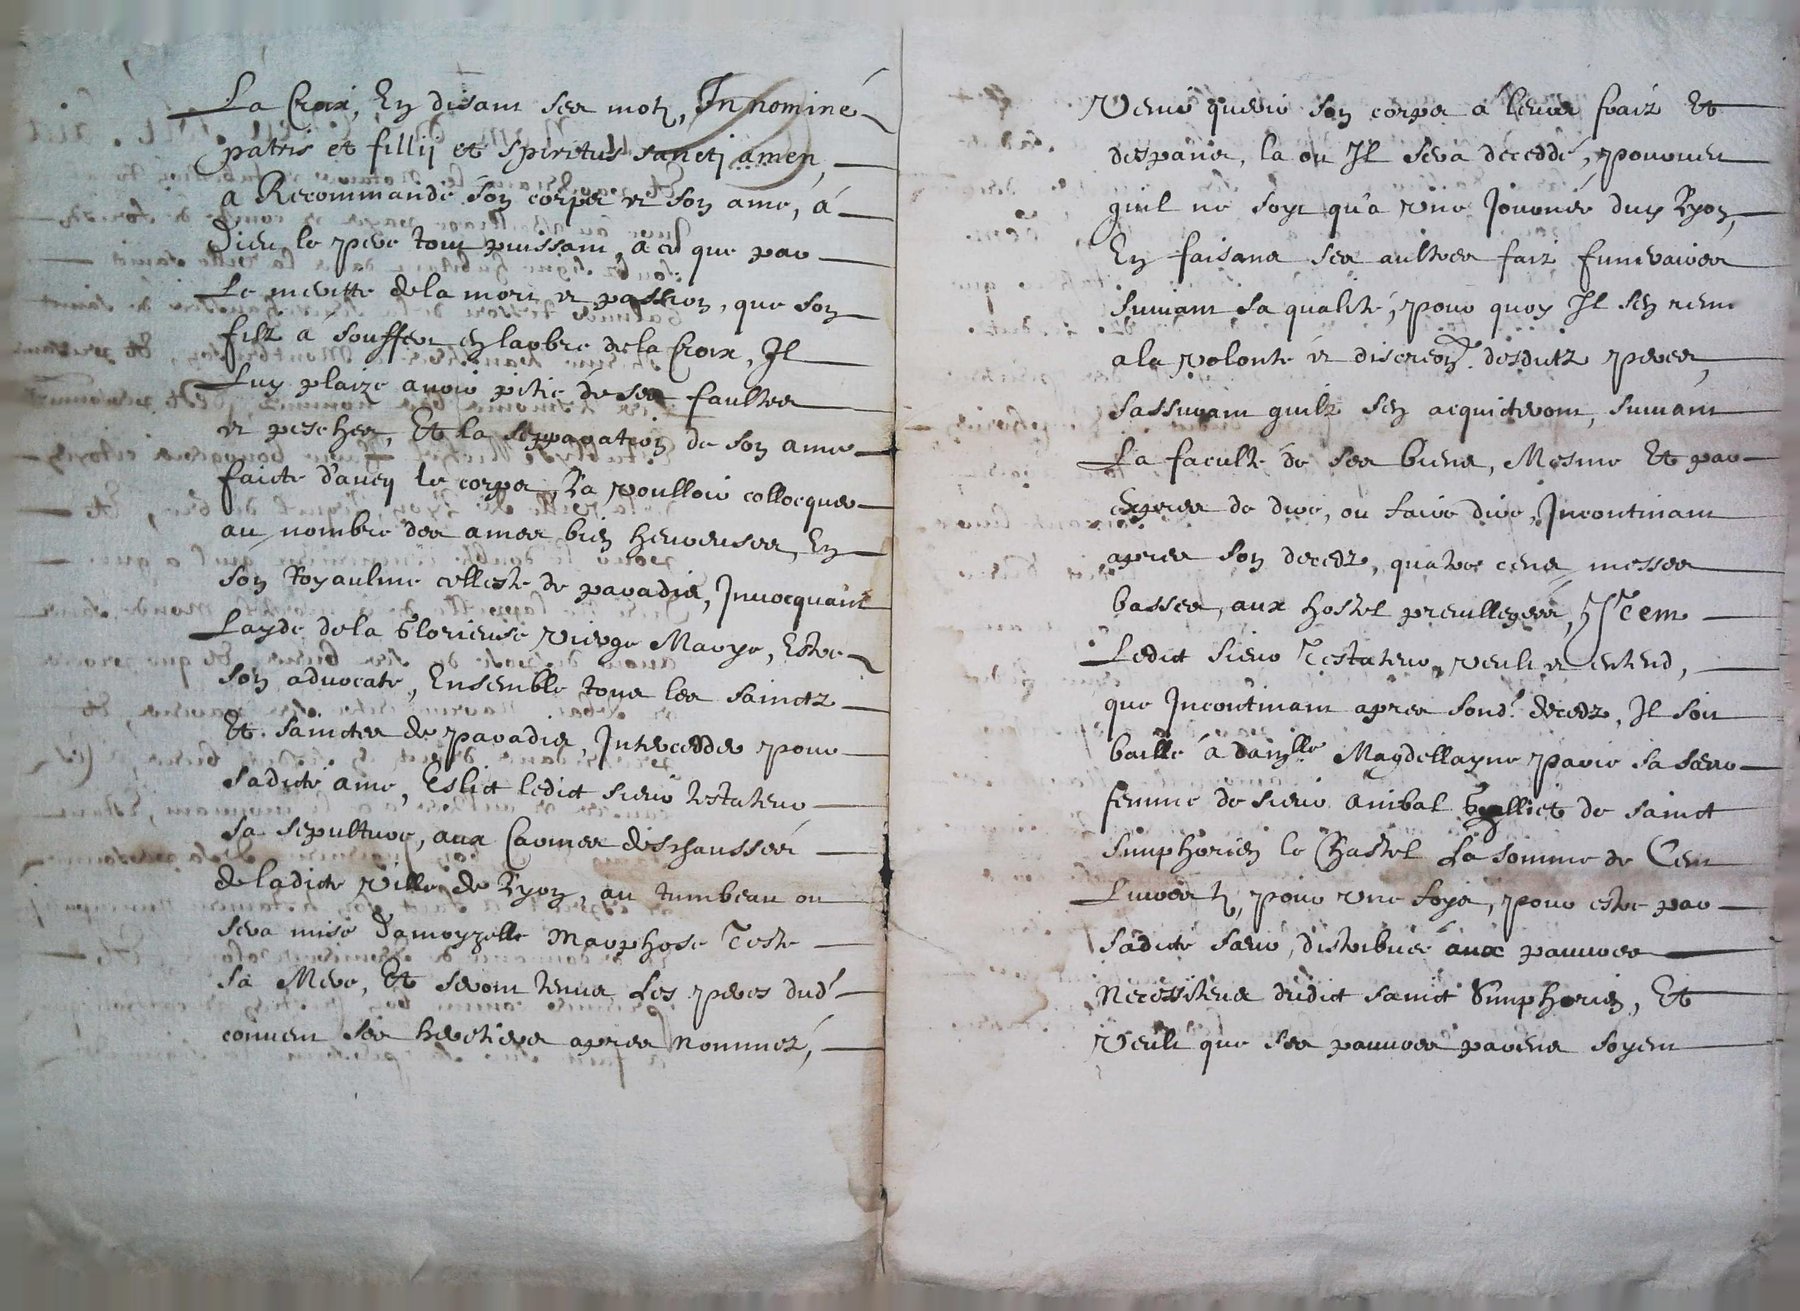 La Croix, En disant ses motz, In nominé
patris et fillij et spiritus sancti amen,
a Recommandé son corps et son ame, á
Dieu le pere tout puissant, a ce que par
Le meritte de la mort et passion, que son
filz a souffert en larbre de la Croix, Il
Luy plaize avoir pitié de ses faultes
et peschez, Et la sepparation de son ame
faicte d'avecq le corps, La voulloir collocquer
au nombre des ames bien heureuses, En
son Royaulme celleste de paradis, Invocquant
Layde de la Glorieuse vierge Marye, Estre
son advocate, Ensemble tous les sainctz
Et sainctes de paradis, Interceddés pour
sadicte ame, Eslict ledict sieur testateur
sa sepulture, aux Carmes deschaussés
de ladicte ville de Lyon, au tumbeau ou
sera mise Damoyzelle Marphose Teste
sa Mere, Et seront tenus Les peres dud.
couvent ses heretiers apres nommez,
Venir querir son corps a leurs fraiz Et
despans, la ou Il sera deceddé, pourveu
quil ne soyt qu'a une Journée dud Lyon,
En faisant ses aultres faiz funeraires
suivant sa qualité, pour quoy Il sen remet
a la volonté et discreon. desdictz peres,
sassurant quilz sen acquiteront, suivant
La faculté de ses biens, Mesme Et par
expres de dire, ou faire dire, Incontinant
apres son decedz, quatre cens messes
basses, aux hostel previlleges, Item
Ledict sieur Testateur, veult et entend,
que Incontinant apres sond. decedz, Il soit
baillé á damlle. Magdellayne parie sa sœur
femme de sieur anibal Galliet de sainct
Simphorien le Chastel La somme de Cent
Livres tz, pour une foys, pour estre par
sadicte sœur, distribuée aux pauvres
Necessiteux dudict sainct Simphorien, Et
Veult que ses pauvres parens soyent